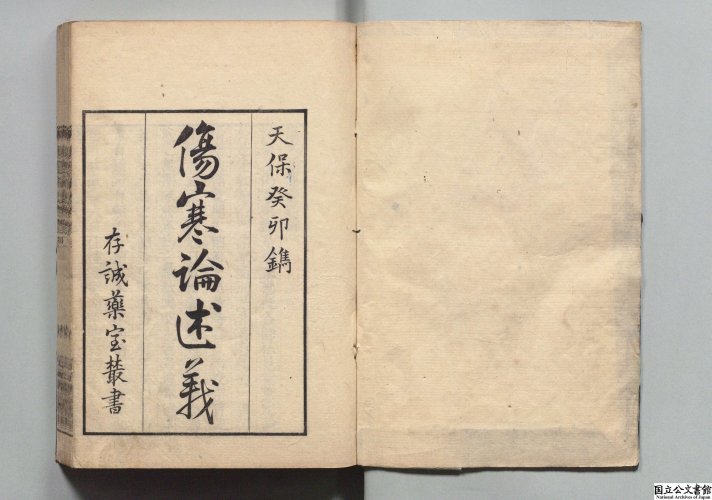 天保癸卯鐫
傷寒論述義
存誠藥室叢書
国立公文書館
National Archives of Japan